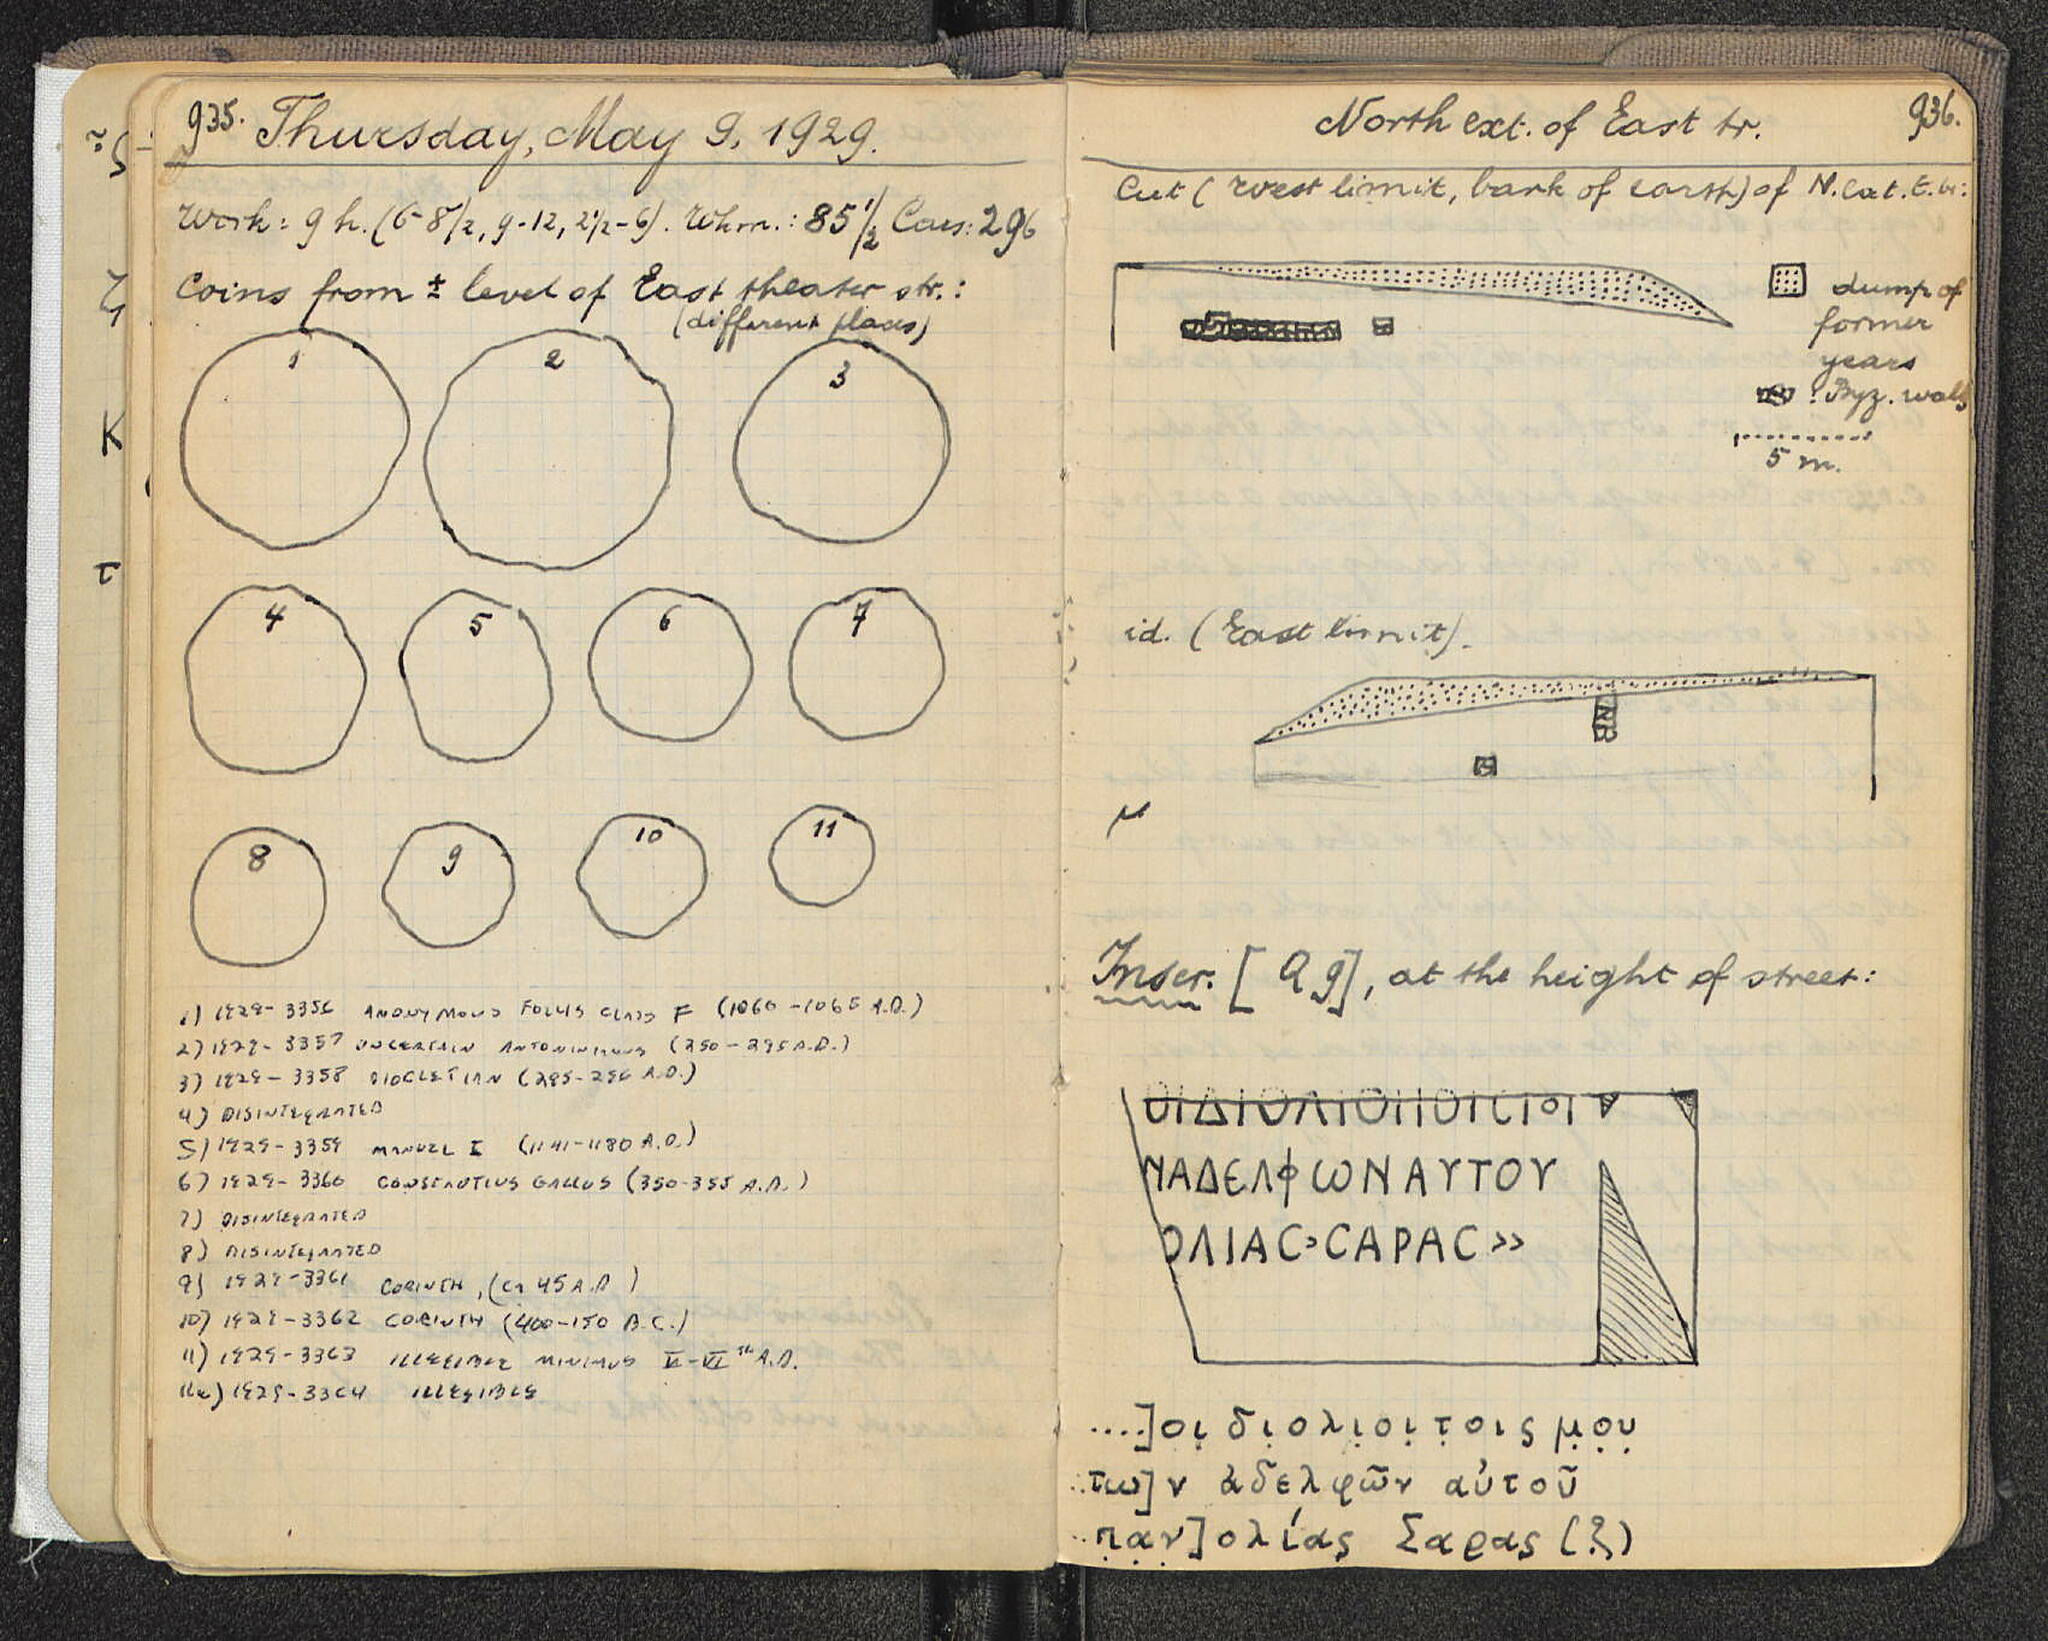 935. Thursday, May 9, 1929.
Work: 9 h. (6-8 1/2, 9-12, 2 1/2-6). Whm.: 85 1/2 Cars: 296
Coins from ± level of East theater str.:
(different places)
1 2 3
4 5 6 7
8 9 10 11
1) 1929-3356 ANONYMOUS FOLLIS CLASS F (1060-1065 A.D.)
2) 1929-3357 UNCERTAIN ANTONINIANUS (250-295 A.D.)
3) 1929-3358 DIOCLETIAN (295-296 A.D.)
4) DISINTEGRATED
5) 1929-3359 MANUEL I (1141-1180 A.D.)
6) 1929-3360 CONSTANTIUS GALLUS (350-355 A.D.)
7) DISINTEGRATED
8) DISINTEGRATED
9) 1929-3361 CORINTH, (CA 45 A.D)
10) 1929-3362 CORINTH (400-150 B.C.)
11) 1929-3363 ILLEGIBLE MINIMUS V-VI th A.D.
11a) 1929-3364 ILLEGIBLE
North ext. of East tr. 936.
Cut (West limit, bank of earth) of N. Ext. E. tr:
dump of
former
years
: Byz. walls
5 m.
id. (East limit).
Inscr. [A 9], at the height of street:
ΝΑΔΕΛΦΩΝΑΥΤΟΥ
ΟΛΙΑC>CΑΡΑC»
....]οι διολιοιτοις μου
..τω]ν ἀδελφῶν αὐτοῦ
..παν]ολίας Σαρας (ξ)